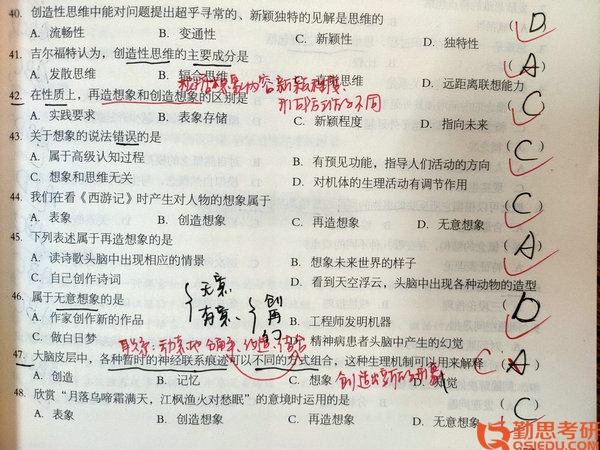 40. 创造性思维中能对问题提出超乎寻常的、新颖独特的见解是思维的 (D)
A. 流畅性 B. 变通性 C. 新颖性 D. 独特性
41. 吉尔福特认为，创造性思维的主要成分是 (A)
A. 发散思维 B. 辐合思维 C. 直觉思维 D. 远距离联想能力
形成与动方的不同
42. 在性质上，再造想象和创造想象的区别是 (C)
A. 实践要求 B. 表象存储 C. 新颖程度 D. 指向未来
43. 关于想象的说法错误的是 (C)
A. 属于高级认知过程 B. 有预见功能，指导人们活动的方向
C. 想象和思维无关 D. 对机体的生理活动有调节作用
44. 我们在看《西游记》时产生对人物的想象属于 (C)
A. 表象 B. 创造想象 C. 再造想象 D. 无意想象
45. 下列表述属于再造想象的是 (A)
A. 读诗歌头脑中出现相应的情景 B. 想象未来世界的样子
C. 自己创作诗词 D. 看到天空浮云，头脑中出现各种动物的造型
无意
有意
创
再
46. 属于无意想象的是 (D)
A. 作家创作新的作品 B. 工程师发明机器
C. 做白日梦 D. 精神病患者头脑中产生的幻觉
47. 大脑皮层中，各种暂时的神经联系痕迹可以不同的方式组合，这种生理机制可以用来解释 (C A)
A. 创造 B. 记忆 C. 想象 D. 知觉
创造出新的形象
48. 欣赏“月落乌啼霜满天，江枫渔火对愁眠”的意境时运用的是 (C
A. 表象 B. 创造想象 C. 再造想象 D. 无意想象
勤思考研
QSIEDU.COM